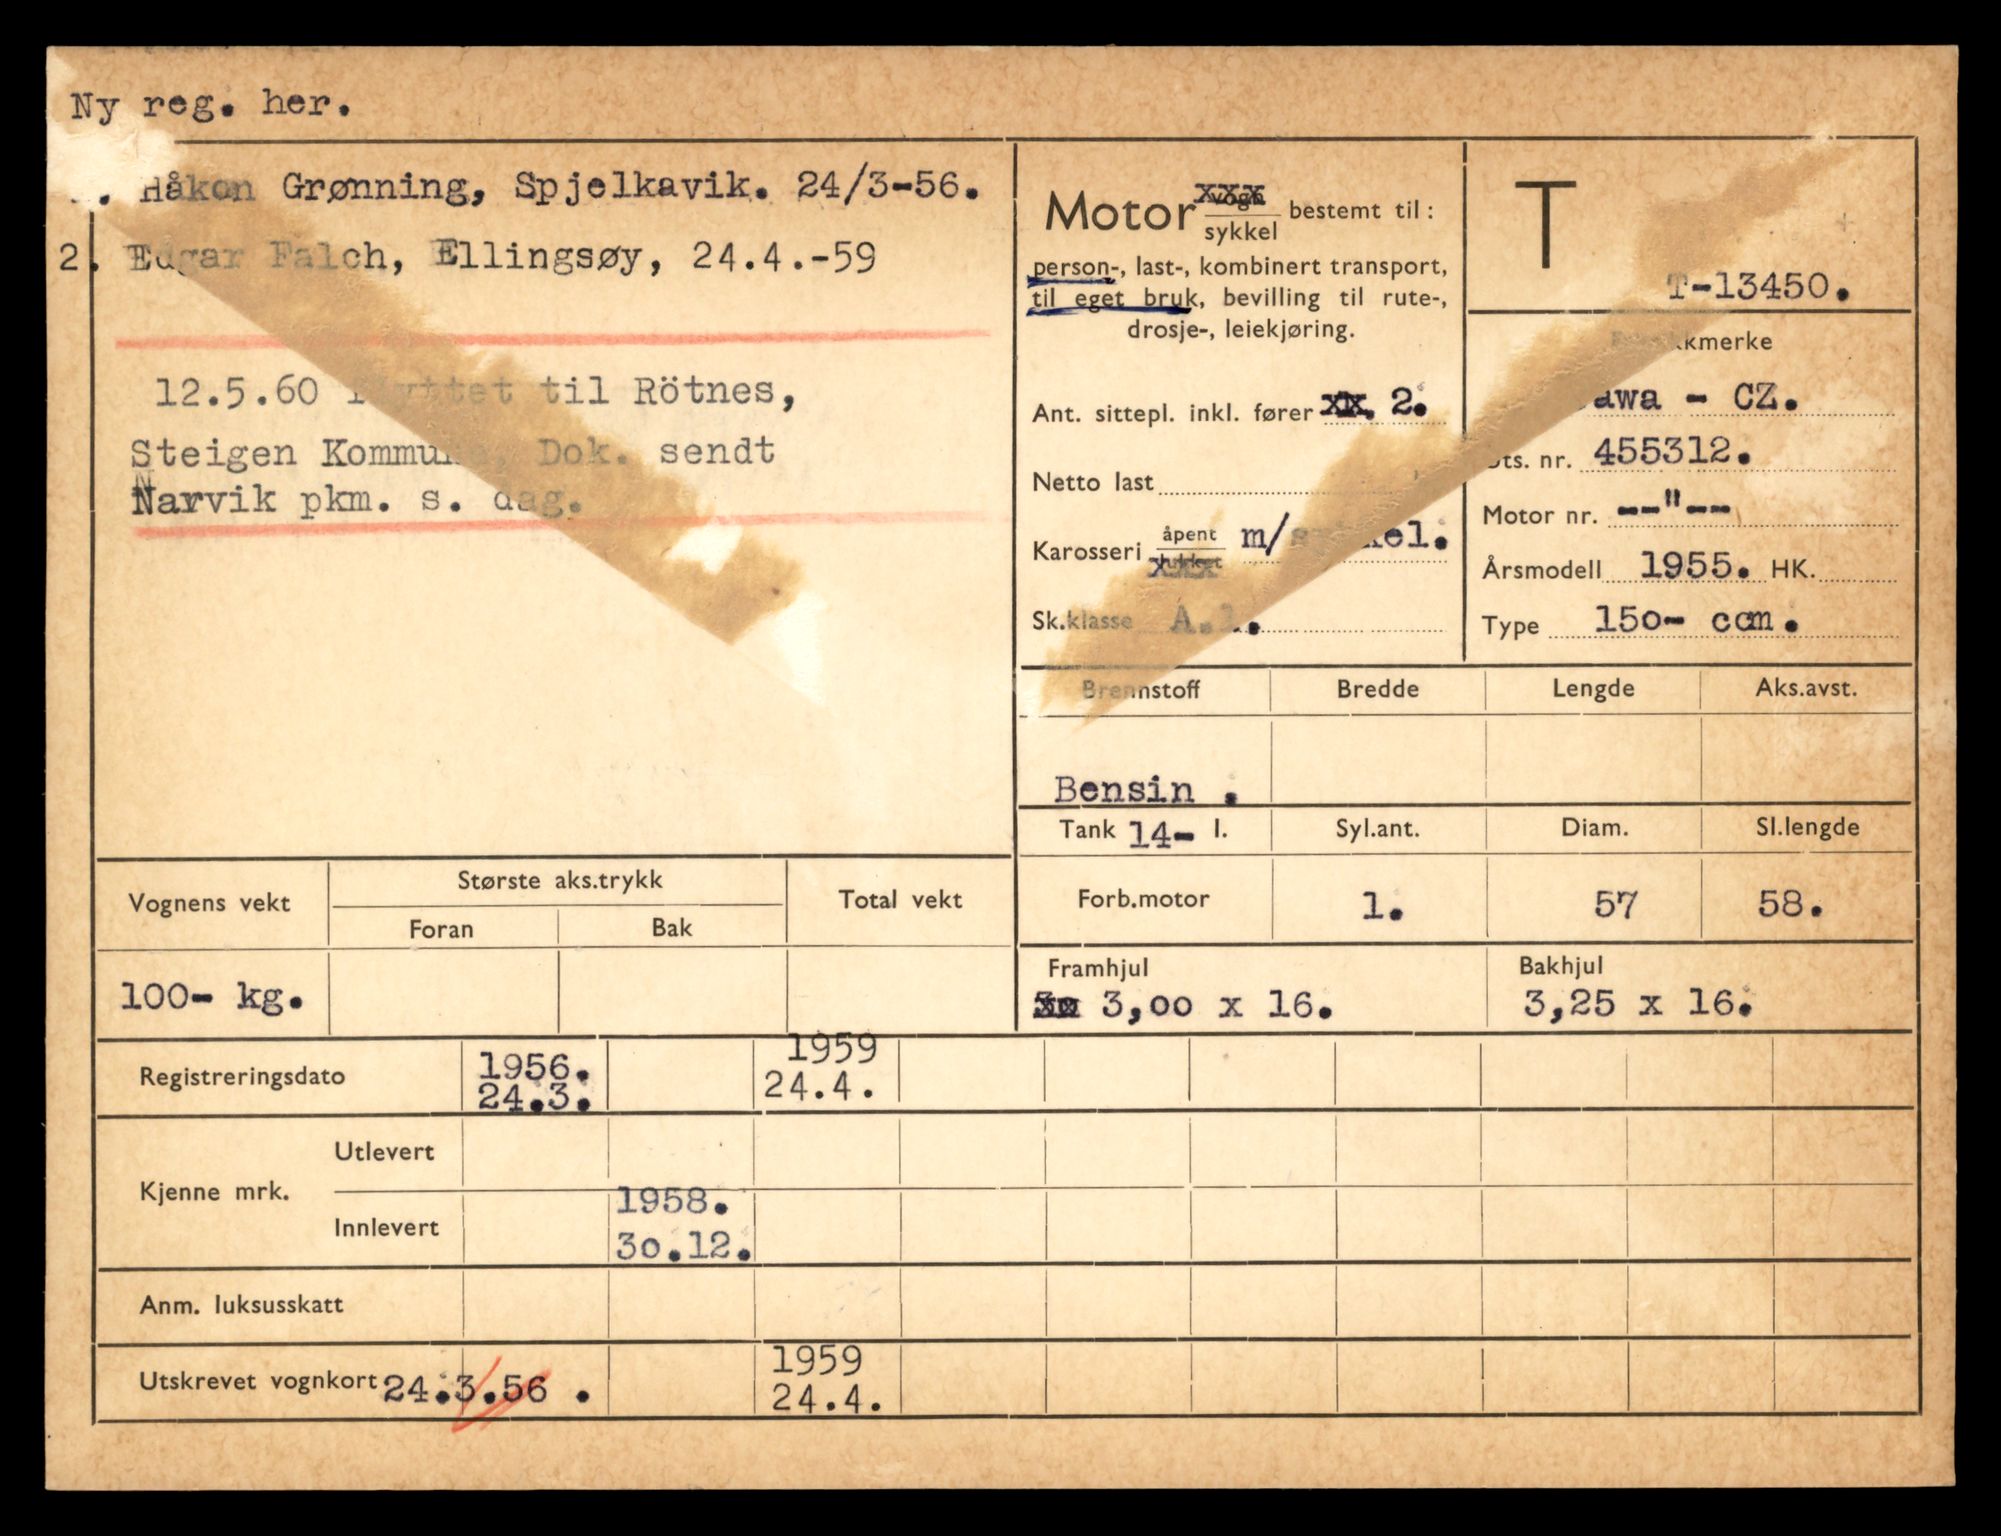 Ny reg. her.
. Håkon Grønning, Spjelkavik. 24/3-56.
2. Edgar Falch, Ellingsøy, 24.4.-59
12.5.60 flyttet til Rötnes,
Steigen Kommune, Dok. sendt
Narvik pkm. s. dag.
Motor vogn xxx
sykkel bestemt til:
person-, last-, kombinert transport,
til eget bruk, bevilling til rute-,
drosje-, leiekjøring.
Ant. sittepl. inkl. fører xx. 2.
Netto last
Karosseri åpent m/sykkel.
lukket xxx
Sk.klasse A.1.
T
T-13450.
Fabrikkmerke
Jawa - CZ.
Uts. nr. 455312.
Motor nr. --"--
Årsmodell 1955. HK.
Type 150- ccm.
Brennstoff Bredde Lengde Aks.avst.
Bensin .
Tank 14- l. Syl.ant. Diam. Sl.lengde
Forb.motor 1. 57 58.
Framhjul Bakhjul
3,00 x 16. 3,25 x 16.
Vognens vekt Største aks.trykk Total vekt
Foran Bak
100- kg.
Registreringsdato 1956. 1959
24.3. 24.4.
Kjenne mrk. Utlevert
Innlevert 1958.
30.12.
Anm. luksusskatt
Utskrevet vognkort 24.3.56 . 1959
24.4.